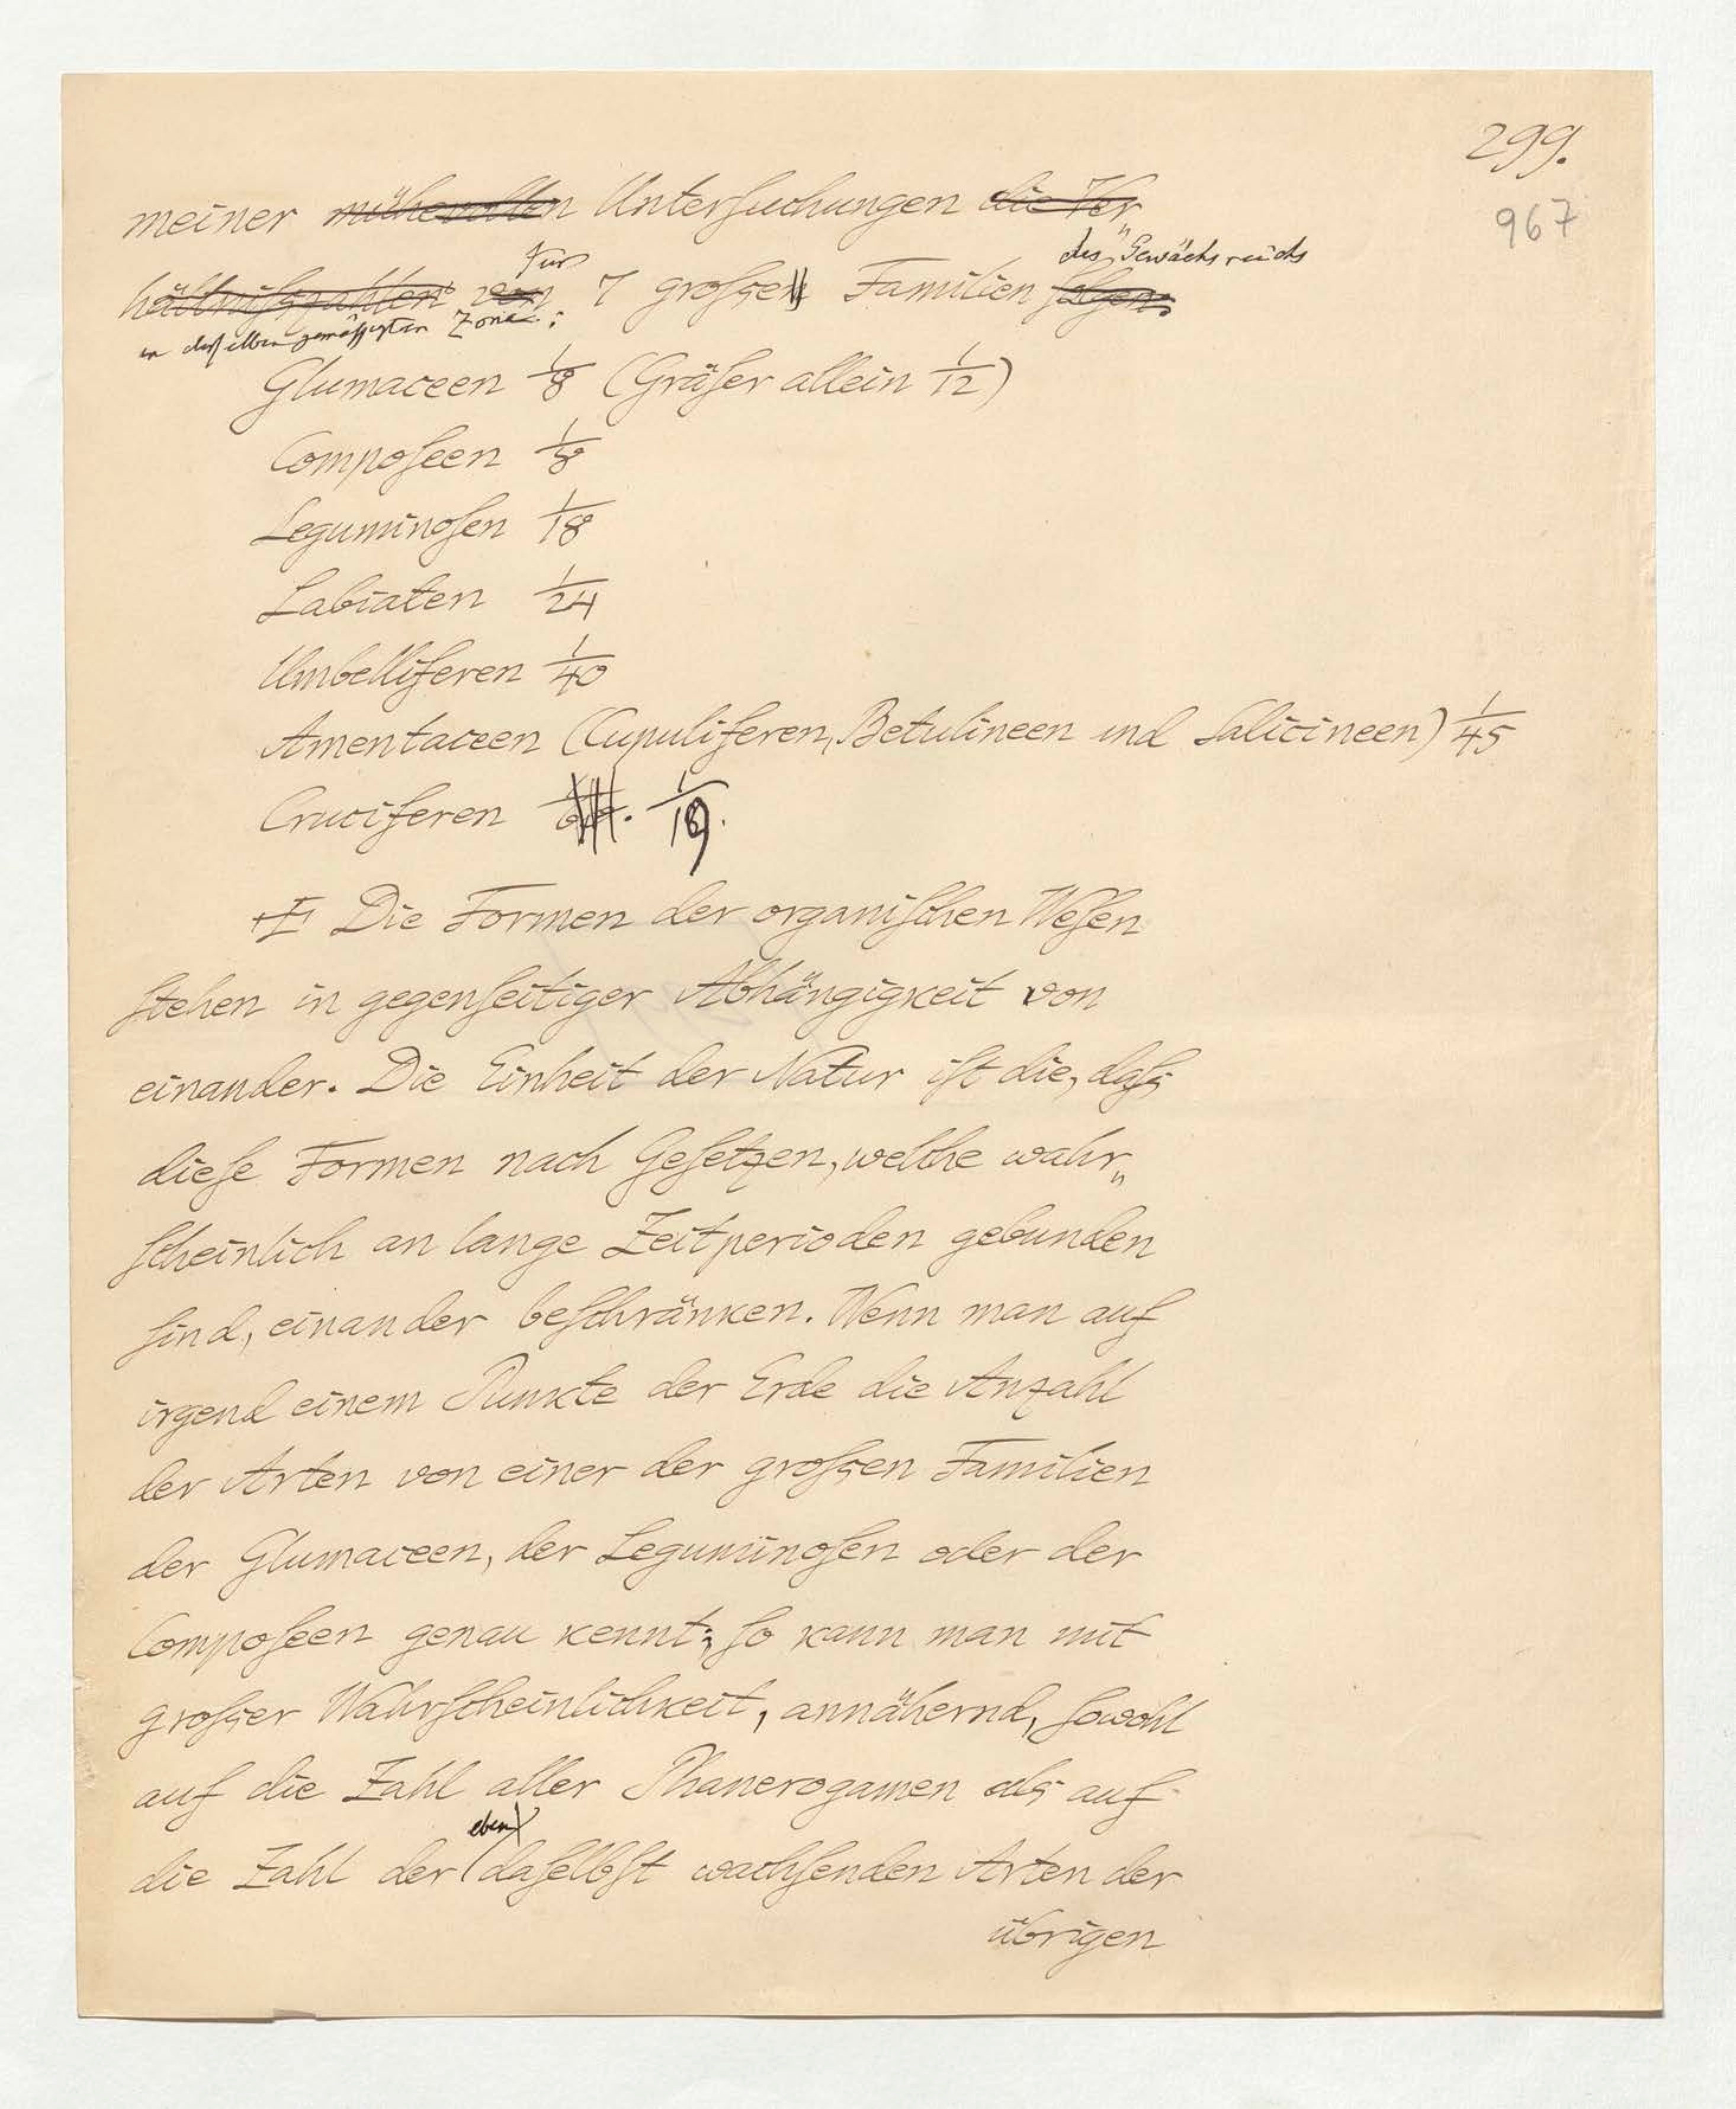 299.
967
meiner mühevollen Untersuchungen die Ver„
für
des Gewächsreichs
hältnißzahlen von 7 großen Familien folgen:
in derselben gemäßigten Zone:
Glumaceen 1/8 (Gräser allein 1/12)
Composeen 1/8
Leguminosen 1/18
Labiaten 1/24
Umbelliferen 1/40
Amentaceen (Cupuliferen, Betulineen und Salicineen) 1/45
Cruciferen 1/19.
Die Formen der organischen Wesen
stehen in gegenseitiger Abhängigkeit von
einander. Die Einheit der Natur ist die, daß
diese Formen nach Gesetzen, welche wahr„
scheinlich an lange Zeitperioden gebunden
sind, einander beschränken. Wenn man auf
irgend einem Punkte der Erde die Anzahl
der Arten von einer der großen Familien
der Glumaceen, der Leguminosen oder der
Composeen genau kennt; so kann man mit
großer Wahrscheinlichkeit, annähernd, sowohl
auf die Zahl aller Phanerogamen als auf
eben
die Zahl der daselbst wachsenden Arten der
übrigen